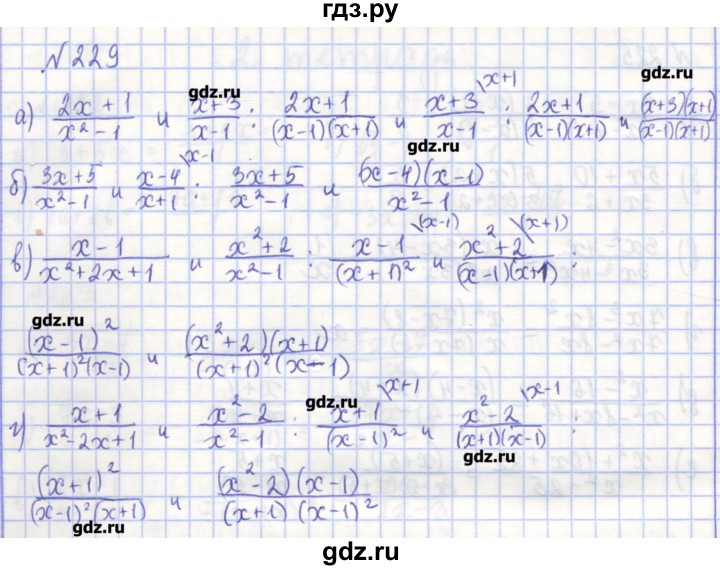 гдз.ру
№229
gdz.ru
gdz.ru
а) (2x+1)/(x²-1) и (x+3)/(x-1) : (2x+1)/((x-1)(x+1)) и (x+3)/(x-1) \x+1 : (2x+1)/((x-1)(x+1)) и ((x+3)(x+1))/((x-1)(x+1))
gdz.ru
б) (3x+5)/(x²-1) и (x-4)/(x+1) \x-1 : (3x+5)/(x²-1) и ((x-4)(x-1))/(x²-1)
в) (x-1)/(x²+2x+1) и (x²+2)/(x²-1) : (x-1)/(x+1)² \(x-1) и (x²+2)/((x-1)(x+1)) \(x+1) :
gdz.ru
(x-1)²/((x+1)²(x-1)) и ((x²+2)(x+1))/((x+1)²(x-1))
gdz.ru
г) (x+1)/(x²-2x+1) и (x²-2)/(x²-1) : (x+1)/(x-1)² \x+1 и (x²-2)/((x+1)(x-1)) \x-1 :
gdz.ru
(x+1)²/((x-1)²(x+1)) и ((x²-2)(x-1))/((x+1)(x-1)²)
gdz.ru